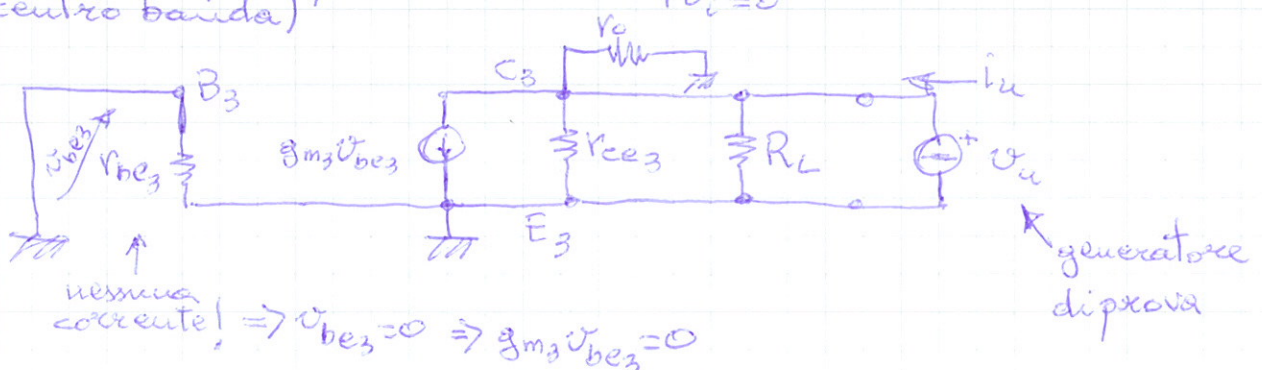 centro banda)
v_i = 0
r_o
C_3
i_u
B_3
v_be3
r_be3
g_m3 v_be3
r_ce3
R_L
+
v_u
E_3
generatore
di prova
nessuna
corrente! ⇒ v_be3 = 0 ⇒ g_m3 v_be3 = 0